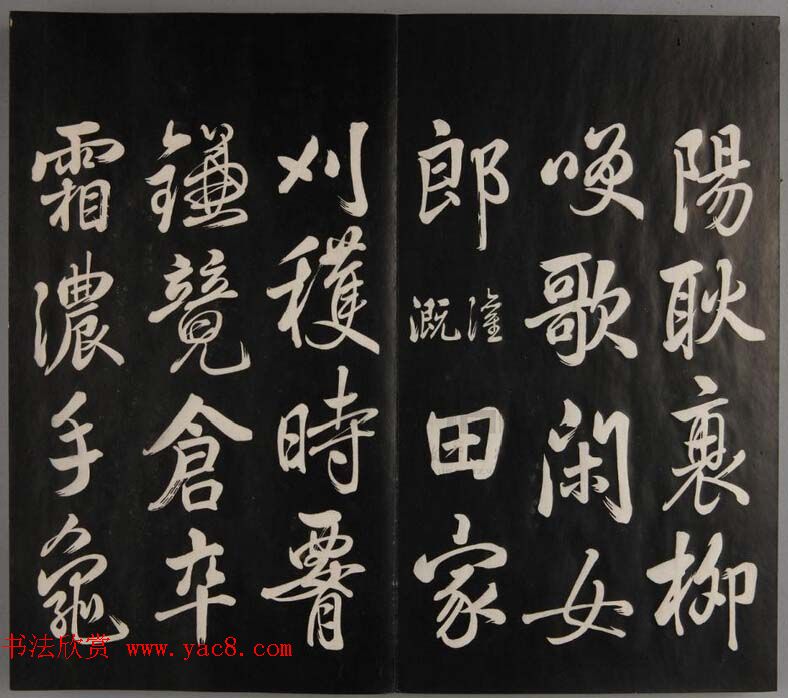 陽耿衰柳
咲歌閑女
郎 灌溉 田家
刈穫時腰
鎌競倉卒
霜濃手龜
书法欣赏 www.yac8.com